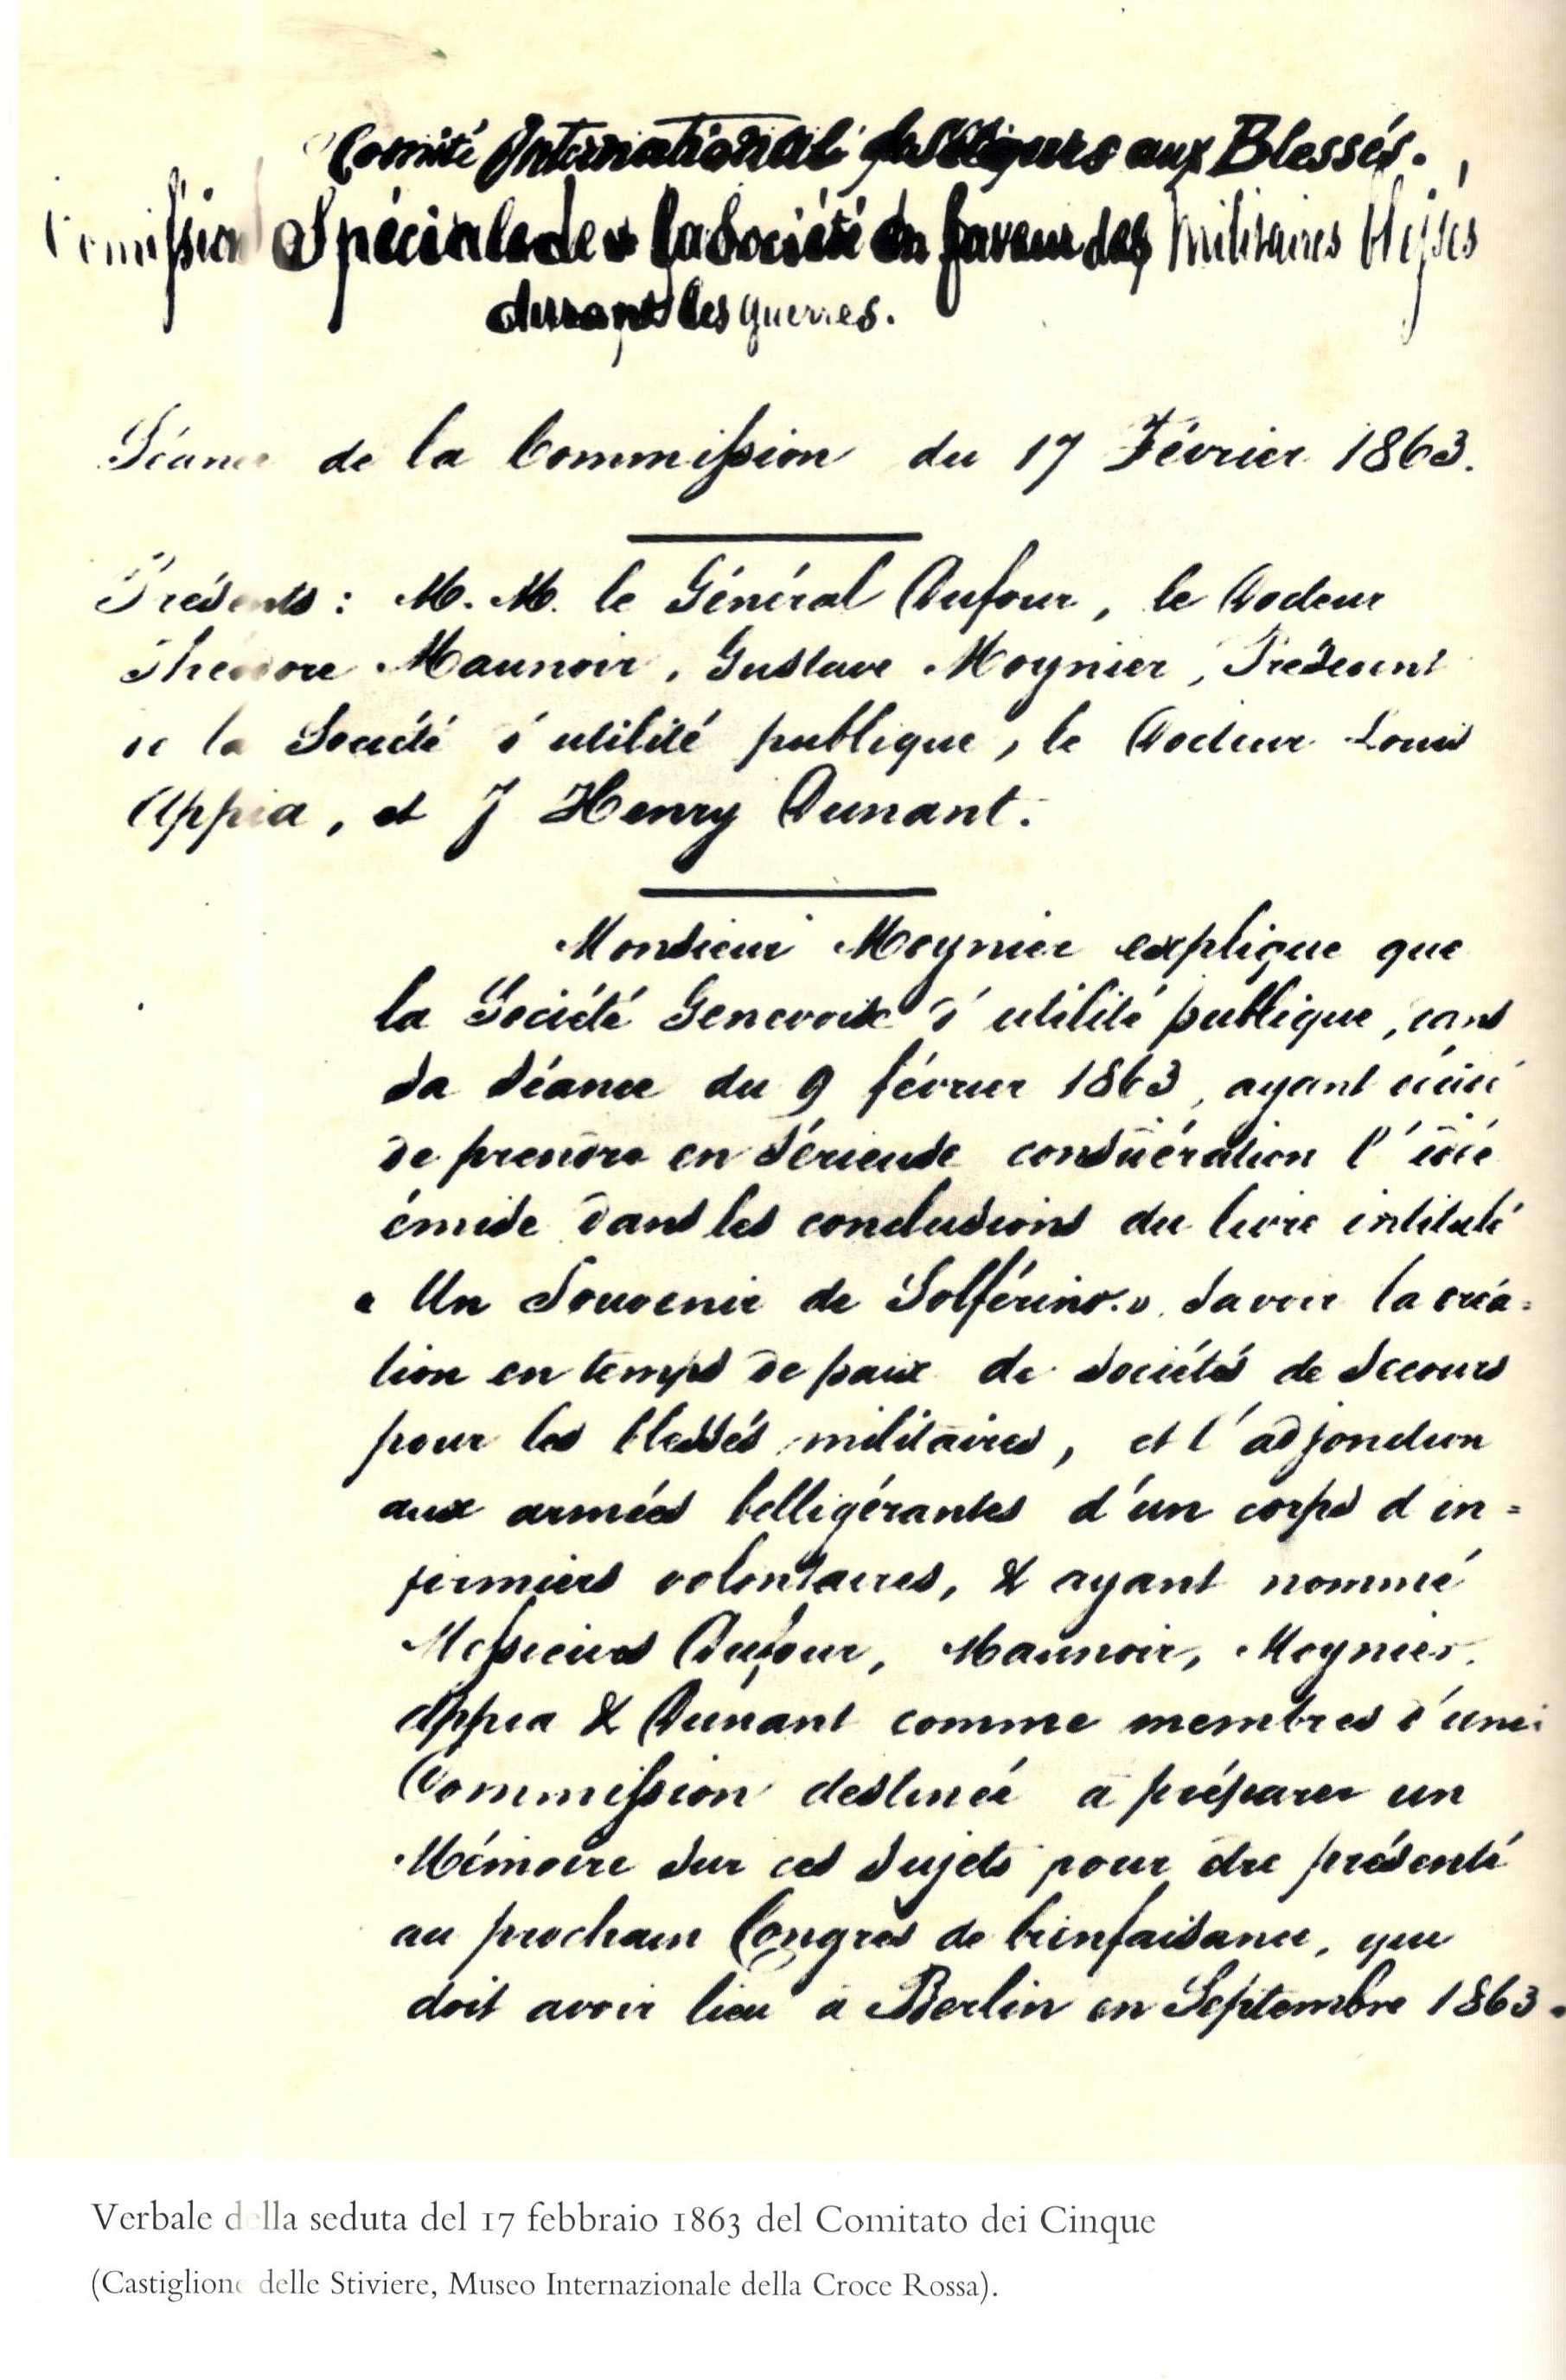 Comité International de Secours aux Blessés.
Commission Spéciale de la Société en faveur des Militaires blessés
durant les guerres.
Séance de la Commission du 17 Février 1863.
Présents : M. M. le Général Dufour, le Docteur
Théodore Maunoir, Gustave Moynier, Président
de la Société d'utilité publique, le Docteur Louis
Appia, et J Henry Dunant.
Monsieur Moynier explique que
la Société Genevoise d'utilité publique, dans
sa séance du 9 février 1863, ayant décidé
de prendre en sérieuse considération l'idée
émise dans les conclusions du livre intitulé
« Un Souvenir de Solférino.» savoir la créa=
tion en temps de paix de sociétés de secours
pour les blessés militaires, et l'adjonction
aux armées belligérantes d'un corps d'in=
firmiers volontaires, & ayant nommé
Messieurs Dufour, Maunoir, Moynier,
Appia & Dunant comme membres d'une
Commission destinée à préparer un
Mémoire sur ces sujets pour être présenté
au prochain Congrès de bienfaisance, qui
doit avoir lieu à Berlin en Septembre 1863.
Verbale della seduta del 17 febbraio 1863 del Comitato dei Cinque
(Castiglione delle Stiviere, Museo Internazionale della Croce Rossa).